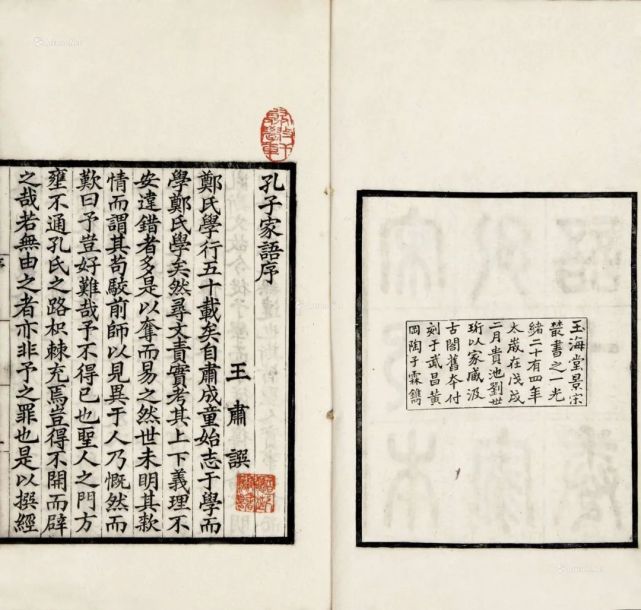 玉海堂景宋
叢書之一光
緒二十有四年
太歲在戊戌
二月貴池劉世
珩以家藏汲
古閣舊本付
刻于武昌黃
岡陶子霖鐫
孔子家語序
王肅譔
鄭氏學行五十載矣自肅成童始志于學而
學鄭氏學矣然尋文責實考其上下義理不
安違錯者多是以奪而易之然世未明其款
情而謂其苟駮前師以見異于人乃慨然而
歎曰予豈好難哉予不得已也聖人之門方
壅不通孔氏之路枳棘充焉豈得不開而辟
之哉若無由之者亦非予之罪也是以撰經